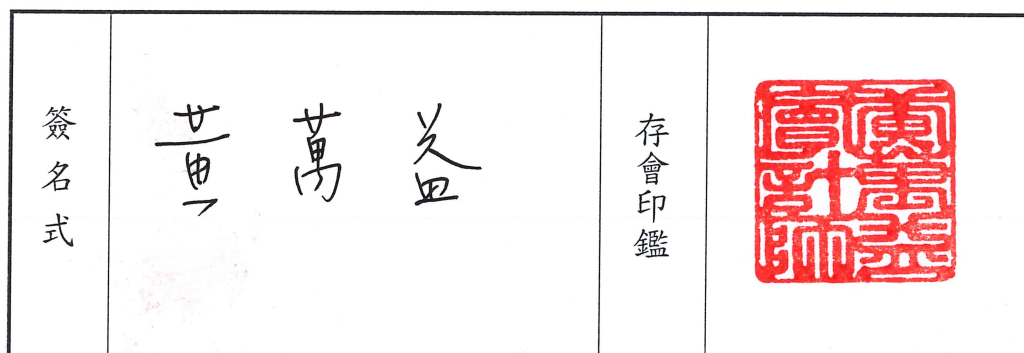 簽名式
黃萬益
存會印鑑
黃萬益會計師